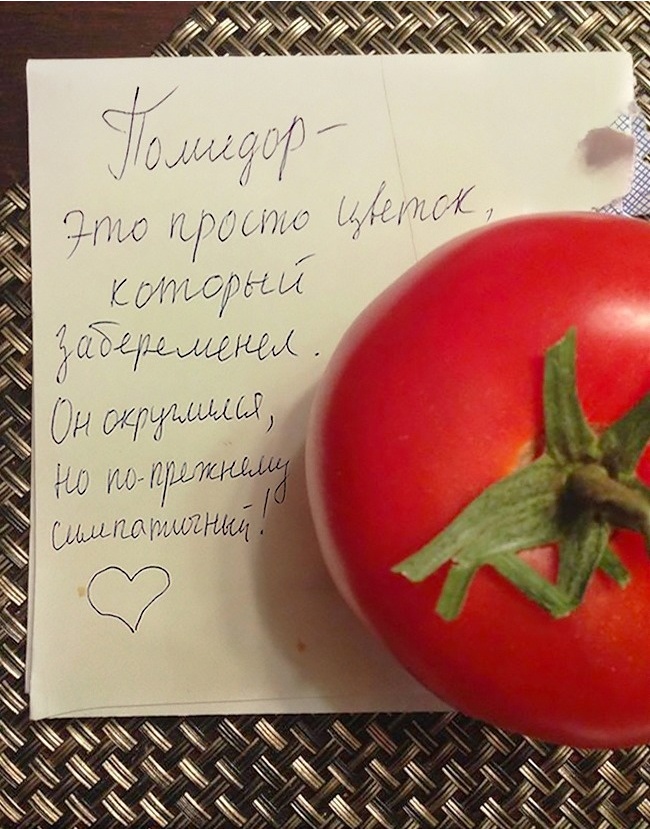 Помидор –
Это просто цветок,
который
забеременел.
Он округлился,
Но по-прежнему
симпатичный!